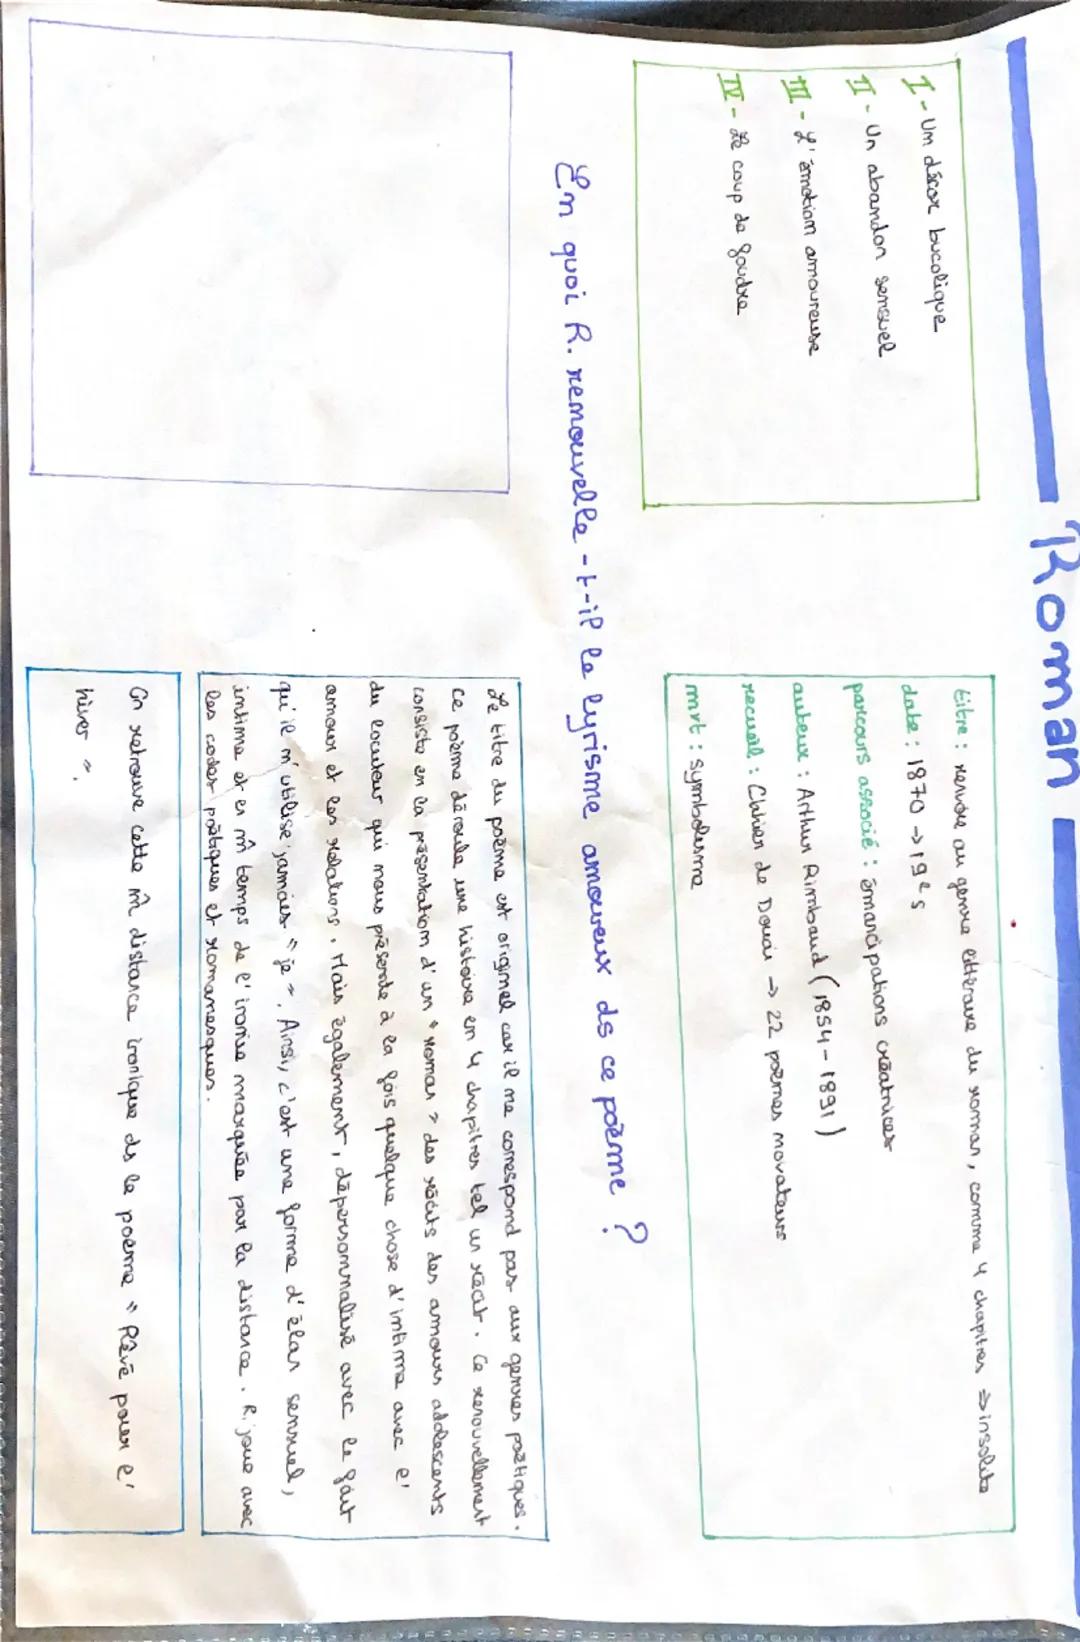 Roman
I - Un décor bucolique
II - Un abandon sensuel
III - L'émotion amoureuse
IV - Le coup de foudre
titre : renvoie au genre littéraire du roman, comme 4 chapitres => insolite
date : 1870 -> 19e s
parcours associé : émancipations créatrices
auteur : Arthur Rimbaud (1854-1891)
recueil : Cahier de Douai -> 22 poèmes novateurs
mvt : Symbolisme
En quoi R. renouvelle-t-il le lyrisme amoureux ds ce poème ?
Le titre du poème est original car il ne correspond pas aux genres poétiques.
Ce poème déroule une histoire en 4 chapitres tel un récit. Ce renouvellement
consiste en la présentation d'un "roman" des récits des amours adolescents
du locuteur qui nous présente à la fois quelque chose d'intime avec l'
amour et les relations. Mais également, dépersonnalisé avec le fait
qu'il n'utilise jamais "je". Ainsi, c'est une forme d'élan sensuel,
intime et en m̂ temps de l'ironie marquée par la distance. R. joue avec
les codes poétiques et romanesques.
On retrouve cette m̂ distance ironique ds le poème "Rêvé pour l'
hiver".